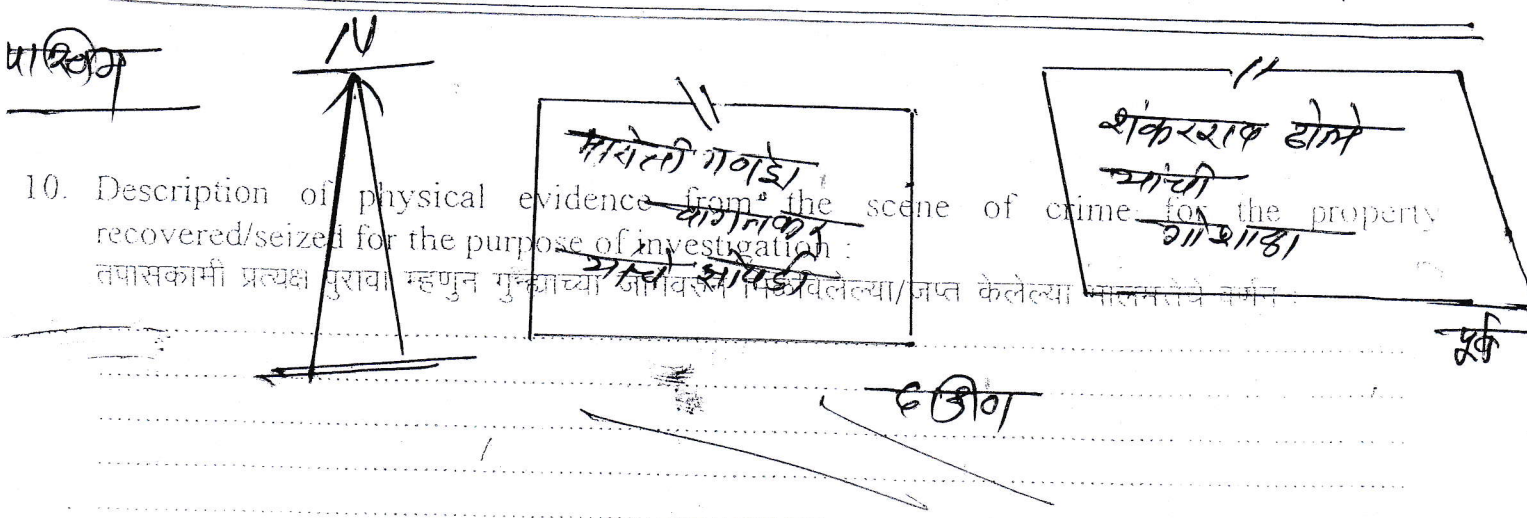 पश्चिम
N
शंकरराव ढोले
यांची
गोशाळा
मारोती
यांची झोपडी
10. Description of physical evidence from the scene of crime for the property
recovered/seized for the purpose of investigation :
तपासकामी प्रत्यक्ष पुरावा म्हणुन गुन्ह्याच्या जागेवरून मिळविलेल्या/जप्त केलेल्या मालमत्तेचे वर्णन :
पूर्व
दक्षिण